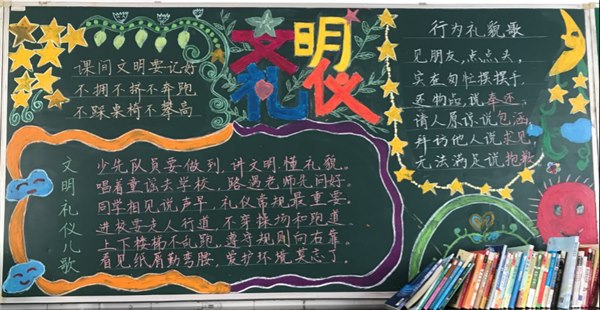 课间文明要记好
不拥不挤不奔跑
不踩桌椅不攀高
文明
礼仪
行为礼貌歌
见朋友,点点头,
实在匆忙摆摆手.
还物品,说奉还,
请人原谅说包涵.
拜访他人说求见,
无法满足说抱歉.
文明礼仪儿歌
少先队员要做到,讲文明,懂礼貌。
唱着童谣去学校,路遇老师先问好。
同学相见说声早,礼仪常规最重要.
进校要走人行道,不穿操场和跑道.
上下楼梯不乱跑,遵守规则向右靠。
看见纸屑勤弯腰,爱护环境莫忘了。